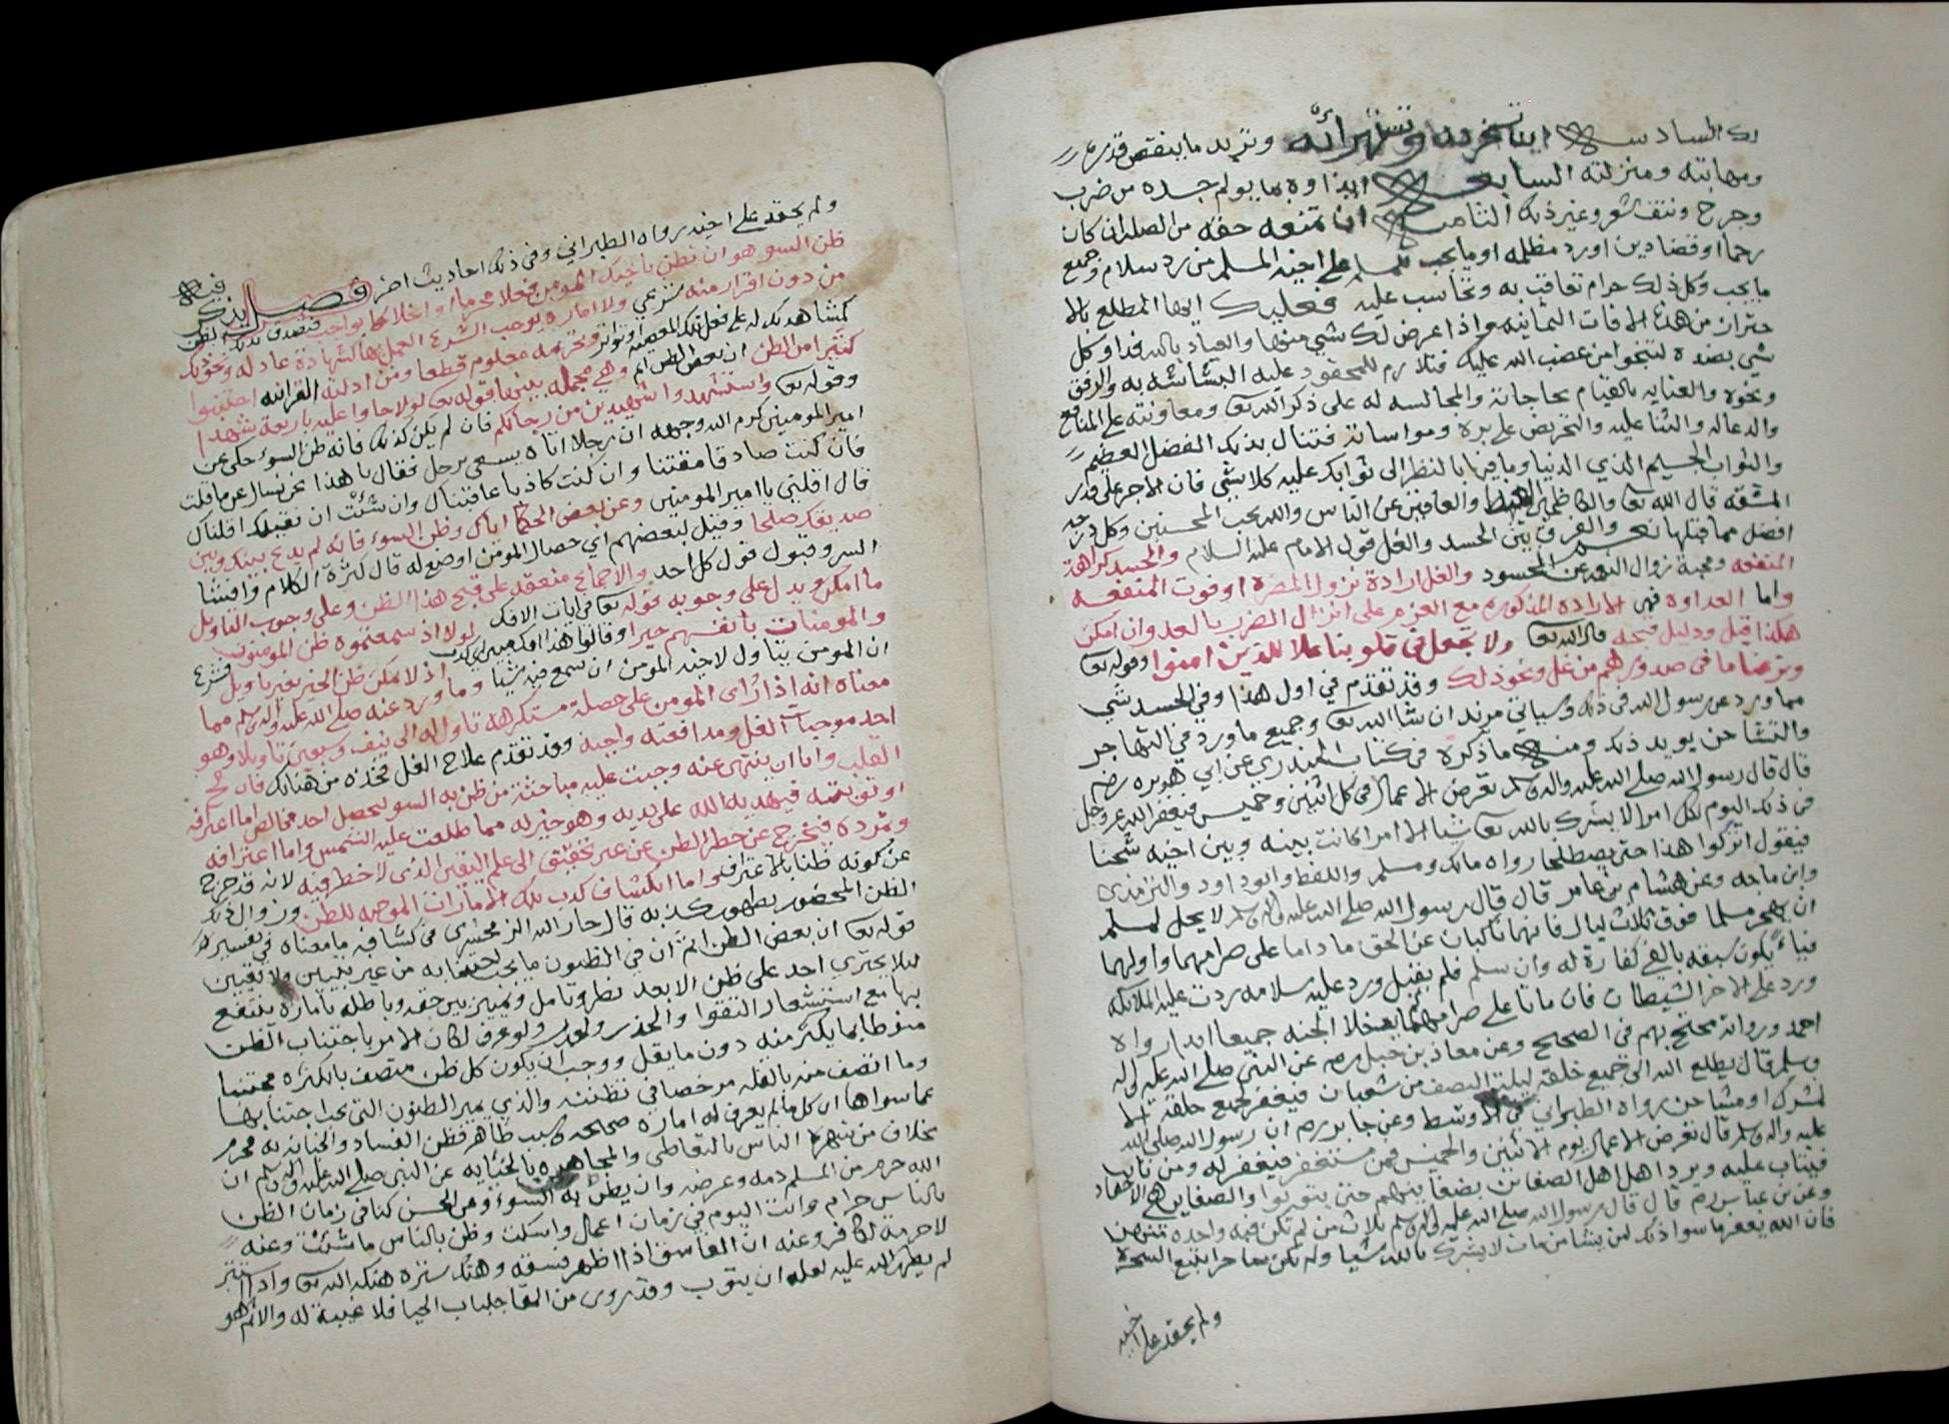 لك السادسه ان تسخر منه وتستهزأ به وتريد ما ينقص قدره
ومهابته ومنزلته السابعه ايذاوه بما يولم جسده من ضرب
وجرح ونتف شعر وغير ذلك الثامنه ان تمنعه حقه من الصله ان كان
رحما او قضا دين او رد مظلمه او ما يجب للمسلم على اخيه المسلم من رد سلام وجميع
ما يجب وكل ذلك حرام تعاقب به وتحاسب عليه فعليك ايها المطلع بالا
حتراز من هذه الافات الثمانيه واذا عرض لك شي منها والعياذ بالله فداو كل
شي بضده لتنجوا من غضب الله عليك فتلازم للمحقود عليه البشاشه به والرفق
ونحوه والعنايه بالقيام بحاجاته والمجالسه له على ذكر الله تعالى ومعاونته على المنافع
والدعا له والثنا عليه والتحريض على بره ومواساته فتنال بذلك الفضل العظيم
والثواب الجسيم الذي الدنيا وما فيها بالنظر الى ثوابك عليه كلا شي فان الاجر على قدر
المشقه قال الله تعالى والكاظمين الغيظ والعافين عن الناس والله يحب المحسنين وكل درجه
افضل مما قبلها نعم والفرق بين الحسد والغل قول الامام عليه السلام والحسد كراهة
المنفعه ومحبة زوال النعمه عن المحسود والغل ارادة نزول المضره او فوت المنفعه
واما العداوه فهي الاراده المذكوره مع العزم على انزال الضرر بالعدو ان امكن
هكذا قيل ودليل قبحه قال الله تعالى ولا تجعل في قلوبنا غلا للذين امنوا وقوله تعالى
ونزعنا ما في صدورهم من غل ونحو ذلك وقد تقدم في اول هذا وفي الحسد شي
مما ورد عن رسول الله في ذلك وسياتي مزيد ان شا الله تعالى وجميع ما ورد في التهاجر
والتشاحن يويد ذلك ومنه ما ذكره في كتاب المنذري عن ابي هريره رضي
قال قال رسول الله صلى الله عليه واله وسلم تعرض الاعمال في كل اثنين وخميس فيغفر الله عز وجل
في ذلك اليوم لكل امرا لا يشرك بالله تعالى شيا الا امرا كانت بينه وبين اخيه شحنا
فيقول اتركوا هذا حتى يصطلحا رواه مالك ومسلم واللفظ وابو داود والترمذي
وابن ماجه وعن هشام بن عامر قال قال رسول الله صلى الله عليه واله وسلم لا يحل لمسلم
ان يهجر مسلما فوق ثلاث ليال فانهما ناكبان عن الحق ما داما على صرامهما واولهما
فياء يكون سبقه بالفي كفارة له وان سلم فلم يقبل ورد عليه سلامه ردت عليه الملائكه
ورد على الاخر الشيطان فان ماتا على صرامهما لم يدخلا الجنه جميعا ابدا رواه
احمد ورواته محتج بهم في الصحيح وعن معاذ بن جبل رضي عن النبي صلى الله عليه واله
وسلم قال يطلع الله الى جميع خلقه ليلة النصف من شعبان فيغفر لجميع خلقه الا
لمشرك او مشاحن رواه الطبراني في الاوسط وعن جابر رضي ان رسول الله صلى الله
عليه واله وسلم قال تعرض الاعمال يوم الاثنين والخميس فمن مستغفر فيغفر له ومن تايب
فيتاب عليه ويرد اهل الضغائن بضغائنهم حتى يتوبوا والضغاين هي الاحقاد
وعن بن عباس رضي قال قال رسول الله صلى الله عليه واله وسلم ثلاث من لم تكن فيه واحده منهن
فان الله يغفر ما سوا ذلك لمن يشا من مات لا يشرك بالله شيا ولم يكن ساحرا يتبع السحره
ولم يحقد على اخيه
ولم يحقد على اخيه رواه الطبراني وفي ذلك احاديث اخر فصل نذكر فيه
ظن السو هو ان تظن باخيك المومن فعلا محرما او اخلالا بواجب
من دون اقرار منه شرعي ولا اماره يوجب الشرع العمل بها كشهادة عادله ونحو ذلك
كثيرا من الظن ان بعض الظن اثم وهي مجمله بينها قوله تعالى لولا جاوا عليه باربعة شهدا
وقوله تعالى واستشهدوا شهيدين من رجالكم فان لم يكن كذلك فانه ظن السوء حكى عن
امير المومنين كرم الله وجهه ان رجلا اتاه يسعى برجل فقال يا هذا نحن نسال عن ما قلت
فان كنت صادقا مقتناك وان كنت كاذبا عاقبناك وان شئت ان نقيلك اقلناك
قال اقلني يا امير المومنين وعن بعض الحكما اياك وظن السوء فانه لم يدع بينك وبين
صديقك صلحا وقيل لبعضهم اي خصال المومن اوضع له قال كثرة الكلام وافشا
السر وقبول قول كل احد والاجماع منعقد على قبح هذا الظن وعلى وجوب التاويل
ما امكن ويدل على وجوبه قوله تعالى في ايات الافك لولا اذ سمعتموه ظن المومنون
والمومنات بانفسهم خيرا وقالوا هذا افك مبين
ان المومن يتاول لاخيه المومن ان سمع فيه شيا وما ورد عنه صلى الله عليه واله وسلم مما
معناه انه اذا راى المومن على خصلة مستكرهه تاول له الى نيف وسبعين تاويلا وهو
احد موجبات الغل ومدافعته واجبه وقد تقدم علاج الغل فخذه من هنالك فان
القلب واما ان ينتهي عنه وجبت عليه مباحثة من ظن به السو ليحصل احد
او توبته فيهديه الله على يديه وهو خير له مما طلعت عليه الشمس واما اعترافه
وتمرده فيخرج عن خطر الظن عن غير تحقيق الى علم اليقين الذي لا خطر فيه لانه قد خرج
عن كونه ظنا بالاعتراف واما انكشاف كذب تلك الامارات الموجبه للظن وزوال ذلك
الظن المحضور بظهور كذبه قال جار الله الزمخشري في كشافه ما معناه في تفسير
قوله تعالى ان بعض الظن اثم ان في الظنون ما يجب اجتنابه من غير تبيين ولا تعيين
ليلا يجتري احد على ظن الا بعد نظر وتامل وتمييز بين حقه وباطله باماره
بينه مع استشعار التقوا والحذر ولو عرف لكان الامر باجتناب الظن
منوطا بما يكثر منه دون ما يقل ووجب ان يكون كل ظن متصف بالكثره مجتنبا
وما اتصف منه بالقله مرخصا في تظننه والذي يميز الظنون التي يجب اجتنابها
عما سواها ان كل ما لم يعرف له اماره صحيحه وسبب ظاهر فظن الفساد والخيانه به محرم
بخلاف من شهره الناس بالتعاطي والمجاهره بالخبائث عن النبي صلى الله عليه واله وسلم ان
الله حرم من المسلم دمه وعرضه وان يظن به السوء وعن الحسن كنا في زمان الظن
بالناس حرام وانت اليوم في زمان اعمل واسكت وظن بالناس ما شئت وعنه
لا حرمة لفاجر وعنه ان الفاسق اذا اظهر فسقه وهتك ستره هتكه الله تعالى واذا استتر
لم يظهر الله عليه لعله ان يتوب وقد روي من القا جلباب الحيا فلا غيبة له والاثم هو